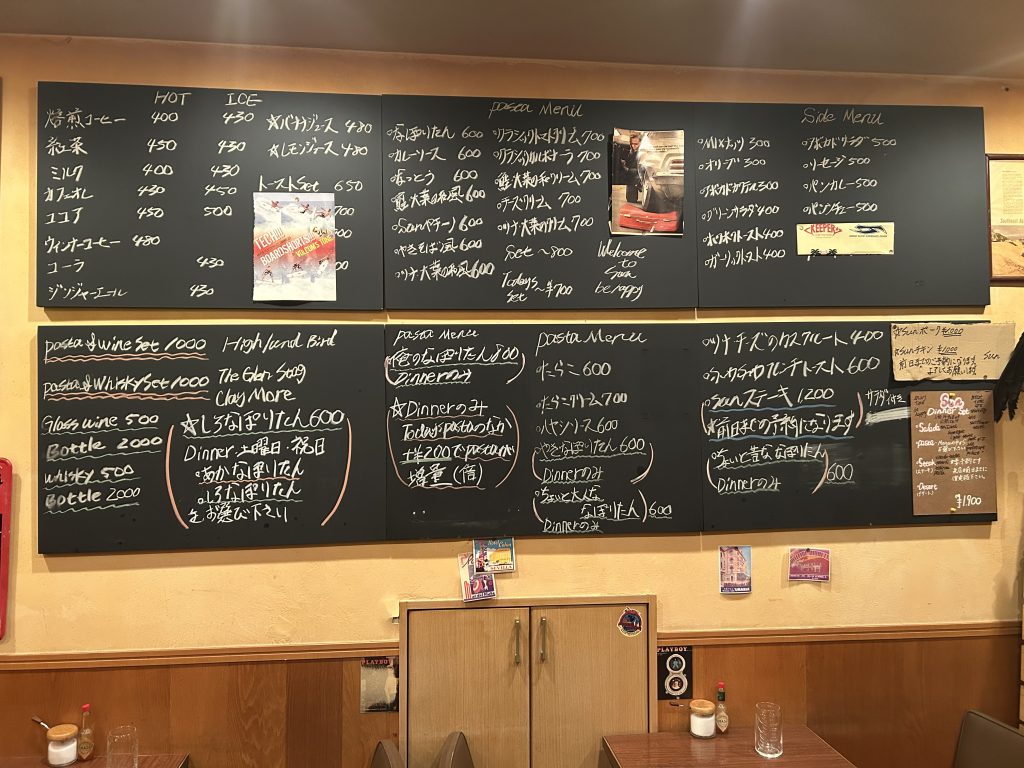 HOT ICE
焙煎コーヒー 400 430
紅茶 450 430
ミルク 400 430
カフェオレ 430 450
ココア 450 500
ウィンナーコーヒー 480
コーラ 430
ジンジャーエール 430
☆バナナジュース 480
☆レモンジュース 480
トーストSet 650
700
TECH!!!
BOARDSHORTS
VOLCOM'S
Pasta Menu
なぽりたん 600
ミートソース 600
なっとう 600
大葉の和風 600
やきそば風 600
ツナ大葉の和風 600
クラシックトマトクリーム 700
700
大葉の和クリーム 700
チーズクリーム 700
ツナ大葉クリーム 700
Set ~800
Todays Set ~¥700
Welcome
to
Sara
be happy
Side Menu
MIXナッツ 300
オリーブ 300
300
グリーンサラダ 400
400
ガーリックトースト 400
アボカドサラダ 500
ソーセージ 500
パンカレー 500
パンシチュー 500
REEFER
pasta & wine Set 1000
pasta & Whisky Set 1000
Glass wine 500
Bottle 2000
whisky 500
Bottle 2000
Highland Bird
The Glen Stag
Clay More
☆しろなぽりたん 600
Dinner 土曜日・祝日
あかなぽりたん
しろなぽりたん
をお選び下さい
pasta Menu
のなぽりたん 800
Dinnerのみ
☆Dinnerのみ
Today pastaのなか
+¥200でpastaが
増量(倍)
pasta Menu
たらこ 600
たらこクリーム 700
600
やきなぽりたん 600
Dinnerのみ
ちょいと大人な
なぽりたん 600
Dinnerのみ
ツナチーズのカスクルート 400
フレンチトースト 600
Sunステーキ 1200
サラダ付き
☆前日までの予約になります
ちょいと昔ななぽりたん
Dinnerのみ
600
☆Sunポーク ¥1000
☆Sunチキン ¥1000
前日までのご予約になります
Sun
Dinner Set
・Salada
・pasta
・Steak
(ステーキ)
・Desert
(デザート)
¥1900
PLAYBOY
PLAYBOY